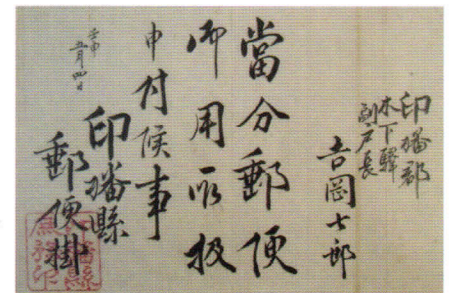 印旛郡
木下驛
副戸長
吉岡七郎
當分郵便
御用取扱
申付候事
壬申
五月四日
印旛縣
郵便掛